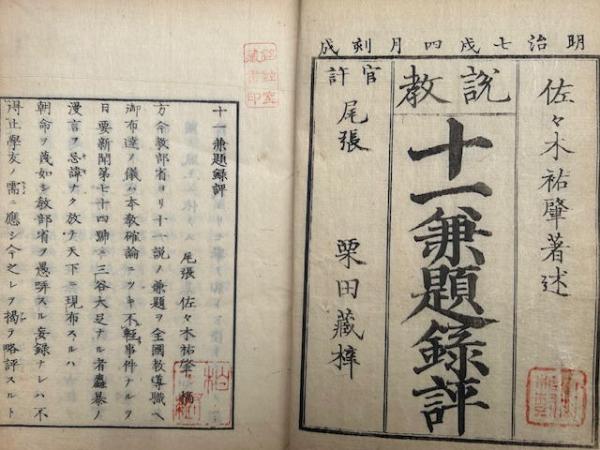 明治七戌四月刻成
官許
佐々木祐肇著述
説教
十一兼題録評
尾張 栗田藏梓
十一兼題録評
尾張 佐々木祐肇 橋
方今教部省ヨリ十一説ノ兼題ヲ全國教導職ヘ
御布達ノ儀ハ本教確論ニツキ不軽事件ナルヲ
日要新聞第七十四號ニ三谷大足ナル者麤暴ノ
漫言ヲ忌諱ナク放チ天下ニ現布スルハ
朝命ヲ蔑如シ教部省ヲ愚哢スル妄録ナレハ不
得止學友ノ需ニ應シ今之レヲ掲テ略評スルト